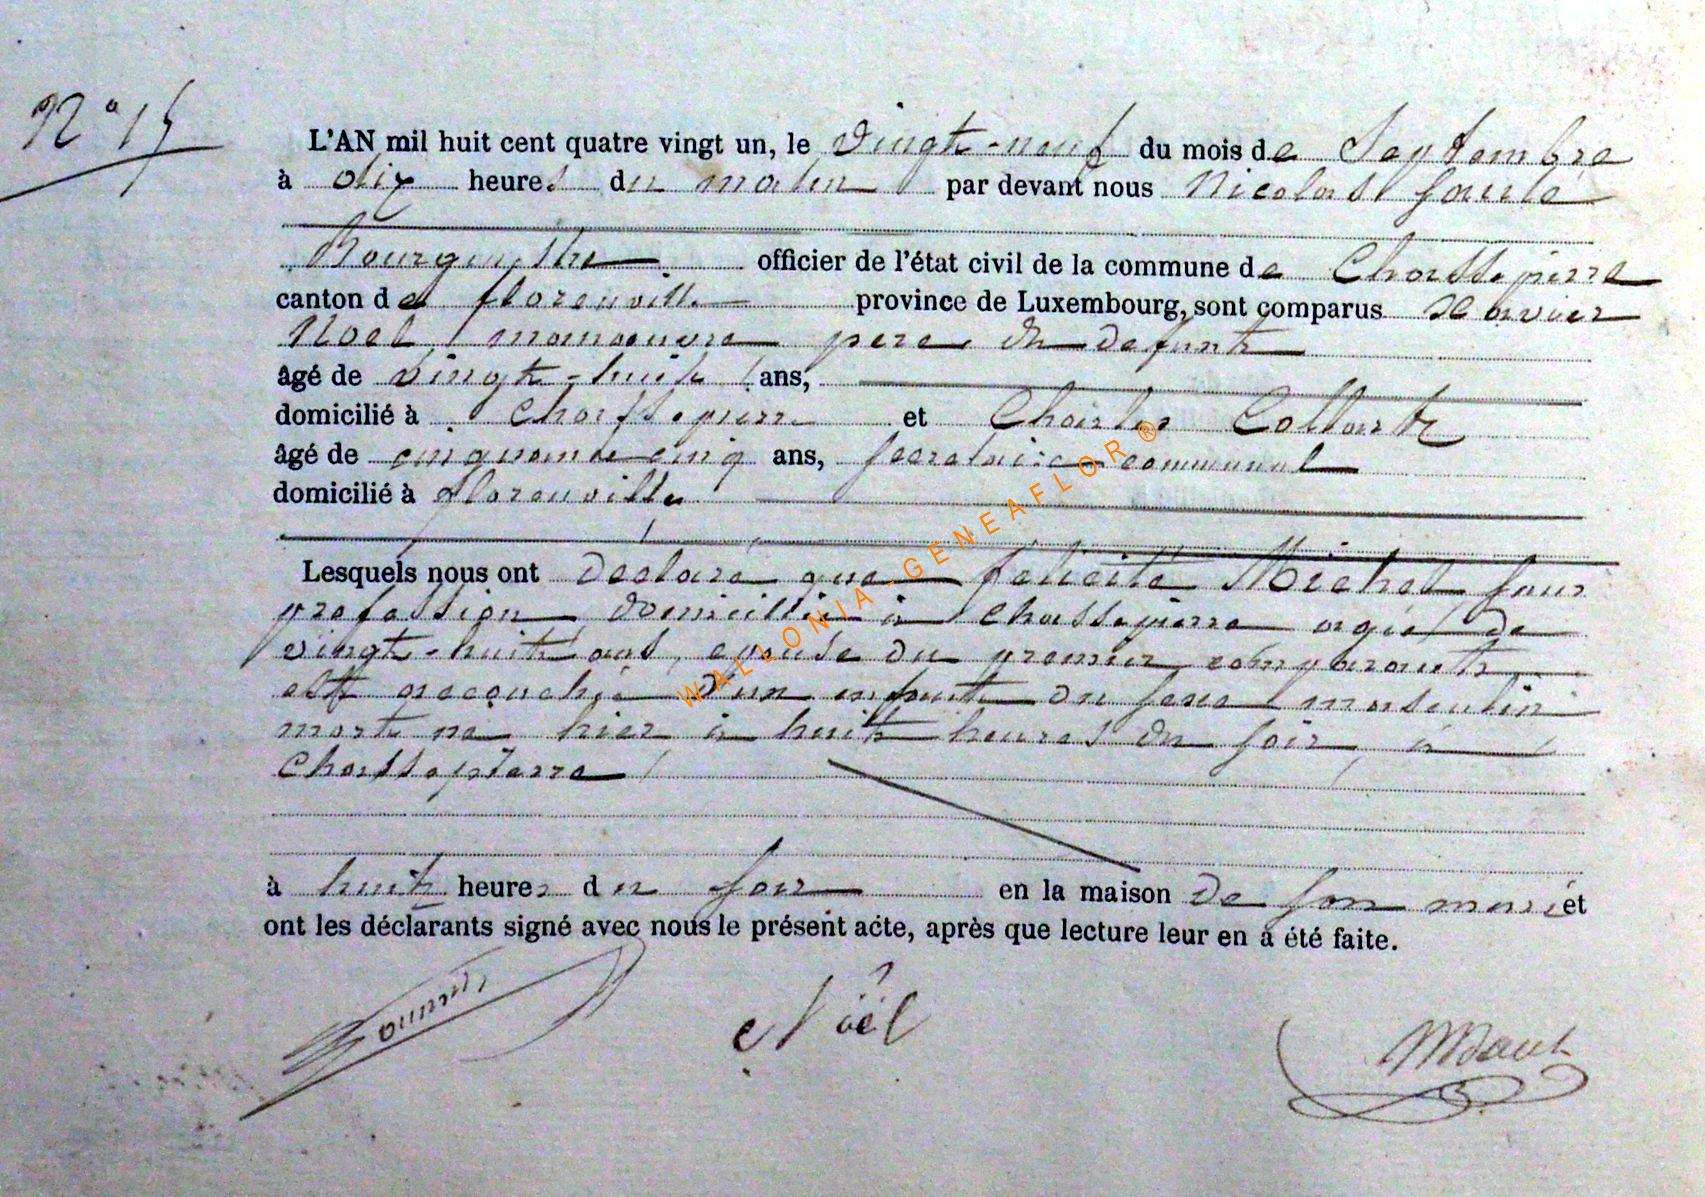 N° 15
L'AN mil huit cent quatre vingt un, le vingt-neuf du mois de Septembre
à dix heures du matin par devant nous Nicolas
Bourgmestre officier de l'état civil de la commune de Chassepierre
canton de florenville province de Luxembourg, sont comparus Xavier
Noel, manoeuvre père du défunt
âgé de vingt-huit ans,
domicilié à Chassepierre et Charles Collart
âgé de cinquante cinq ans, secretaire communal
domicilié à florenville
Lesquels nous ont déclaré que félicité Michel sans
profession domiciliée à Chassepierre agée de
vingt-huit ans, epouse du premier comparant
est accouchée d'un enfant du sexe masculin
mort né hier à huit heures du soir, à
Chassepierre
à huit heures du soir en la maison de son mari et
ont les déclarants signé avec nous le présent acte, après que lecture leur en a été faite.
Noël
WALLONIA-GENEAFLOR ®